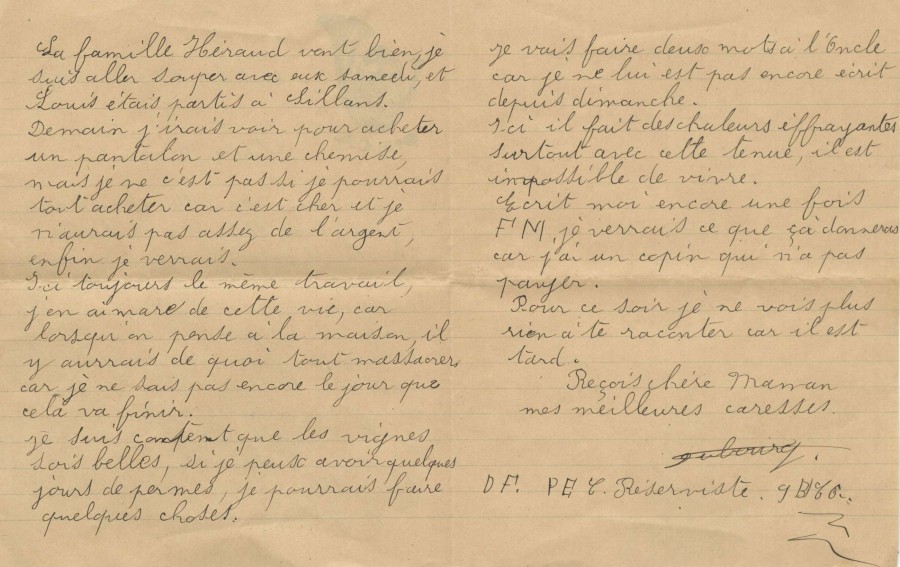 La famille Héraud vont bien, jè
suis aller souper avec eux samedi, et
Louis étais partis à Sillans.
Demain j'irais voir pour acheter
un pantalon et une chemise,
mais je ne c'est pas si je pourrais
tout acheter car c'est cher et je
n'aurais pas assez de l'argent,
enfin je verrais.
Ici toujours le même travail,
j'en ai mare de cette vie, car
lorsqu'on pense à la maison, il
y aurrais de quoi tout massacrer,
car jè ne sais pas encore le jour que
celà va finir.
je suis content que les vignes
sois belles, si je peux avoir quelques
jours de permes, je pourrais faire
quelques choses.
je vais faire deux mots à l'Oncle
car je ne lui est pas encore écrit
depuis dimanche.
Ici il fait des chaleurs effrayantes
surtout avec cette tenue, il est
impossible de vivre.
Ecrit moi encore une fois
F M, je verrais ce que çà donneras
car j'ai un copin qui n'a pas
payer.
Pour ce soir jè ne vois plus
rien à te raconter car il est
tard.
Reçois chère Maman
mes meilleures caresses.
Réserviste.